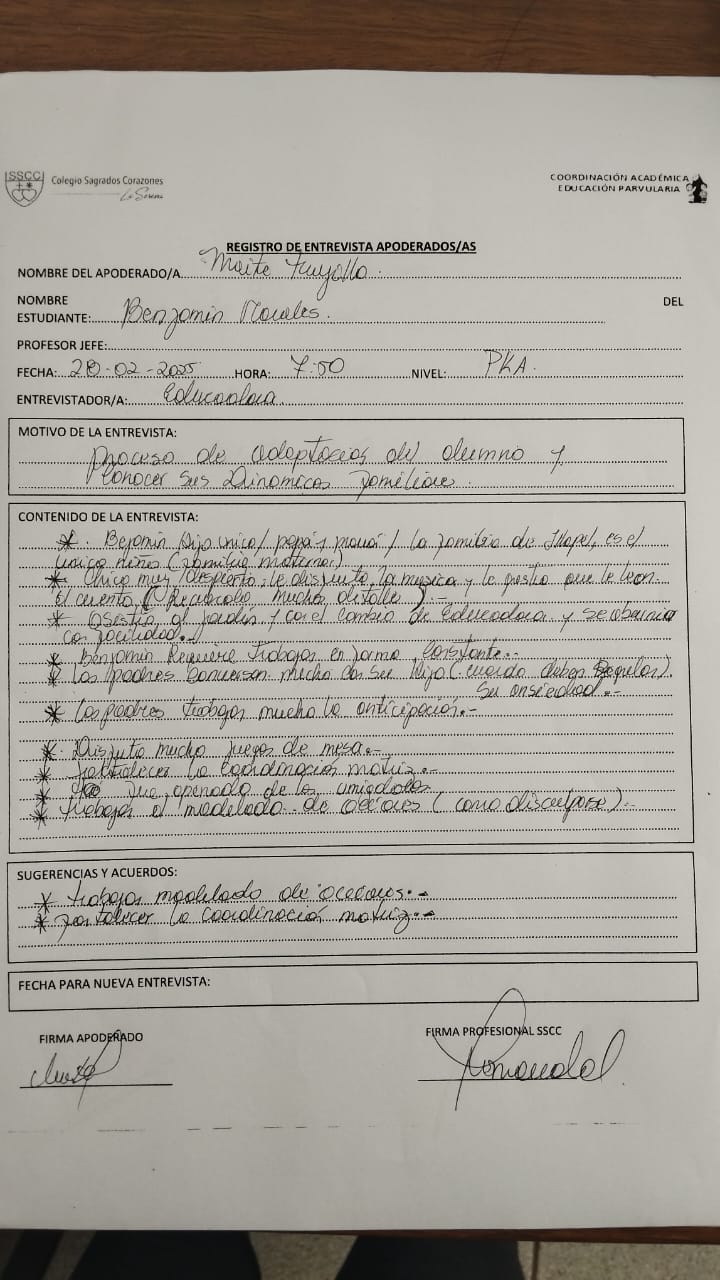 SSCC
Colegio Sagrados Corazones
La Serena
COORDINACIÓN ACADÉMICA
EDUCACIÓN PARVULARIA
REGISTRO DE ENTREVISTA APODERADOS/AS
NOMBRE DEL APODERADO/A Maite Trujillo.
NOMBRE DEL
ESTUDIANTE: Benjamin Morales.
PROFESOR JEFE:
FECHA: 28-02-2025 HORA: 7:50 NIVEL: PKA.
ENTREVISTADOR/A: Educadora
MOTIVO DE LA ENTREVISTA:
Proceso de adaptación del alumno y
Conocer sus Dinamicas familiares
CONTENIDO DE LA ENTREVISTA:
* . Bejamin Hijo unico/ papá y mamá/ la familia de Illapel, es el
unico niño (familia materna.)
* Chico muy despierto, le disfruta la musica y le gusta que le lean
El cuento, ( mucho detalle ).-
* Asistia al jardin y con el cambio de Educadora y
con facilidad.
* Benjamin Requiere Trabajos en forma Constante.-
* Los padres Conversan mucho con su Hijo (cuando deben Regular).
Su ansiedad.-
* Los padres trabajan mucho la anticipación.-
* Disfruta mucho juegos de mesa.-
* fortalecer la coordinación motriz.-
* Fue operado de las amigdalas
* trabajar el modelado de acciones ( como disculparse ).-
SUGERENCIAS Y ACUERDOS:
* trabajar modelado de acciones.-
* fortalecer la coordinación motriz.-
FECHA PARA NUEVA ENTREVISTA:
FIRMA APODERADO
FIRMA PROFESIONAL SSCC